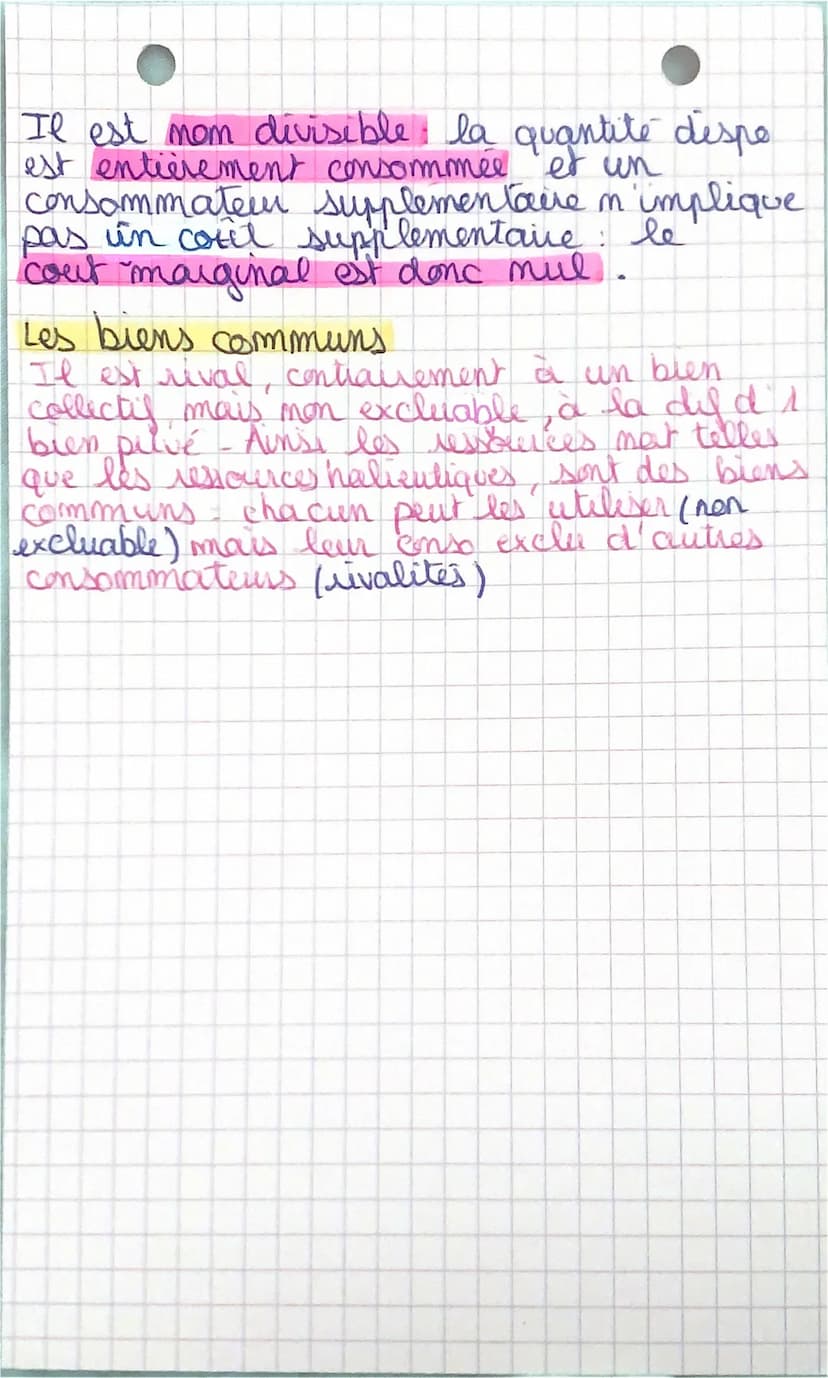 Il est non divisible : la quantité dispo
est entièrement consommée et un
consommateur supplémentaire n'implique
pas un coût supplémentaire : le
cout marginal est donc nul .
Les biens communs
Il est rival, contrairement à un bien
collectif, mais non excluable, à la dif d'1
bien privé - Ainsi les ressources nat telles
que les ressources halieutiques, sont des biens
communs : chacun peut les utiliser (non
excluable) mais leur conso exclu d'autres
consommateurs (rivalités)